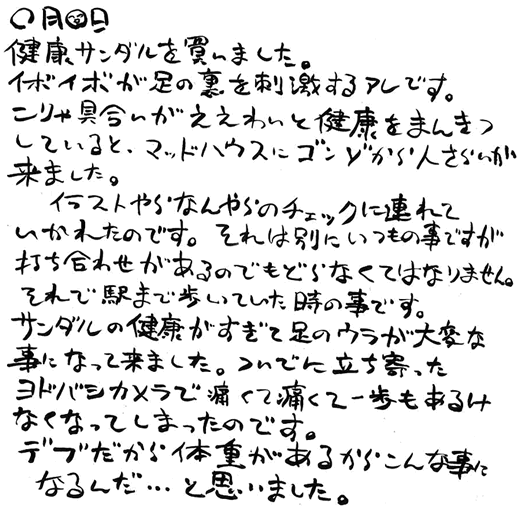 〇月〇日
健康サンダルを買いました。
イボイボが足の裏を刺激するアレです。
こりゃ具合いがええわいと健康をまんきつ
していると、マッドハウスにゴンゾから人さらいが
来ました。
イラストやらなんやらのチェックに連れて
いかれたのです。それは別にいつもの事ですが
打ち合わせがあるのでもどらなくてはなりません。
それで駅まで歩いていた時の事です。
サンダルの健康がすぎて足のウラが大変な
事になって来ました。ついでに立ち寄った
ヨドバシカメラで痛くて痛くて一歩もあるけ
なくなってしまったのです。
デブだから体重があるからこんな事に
なるんだ…と思いました。